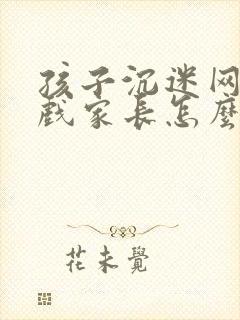 孩子沉迷网
戏家长怎麼
花未覺